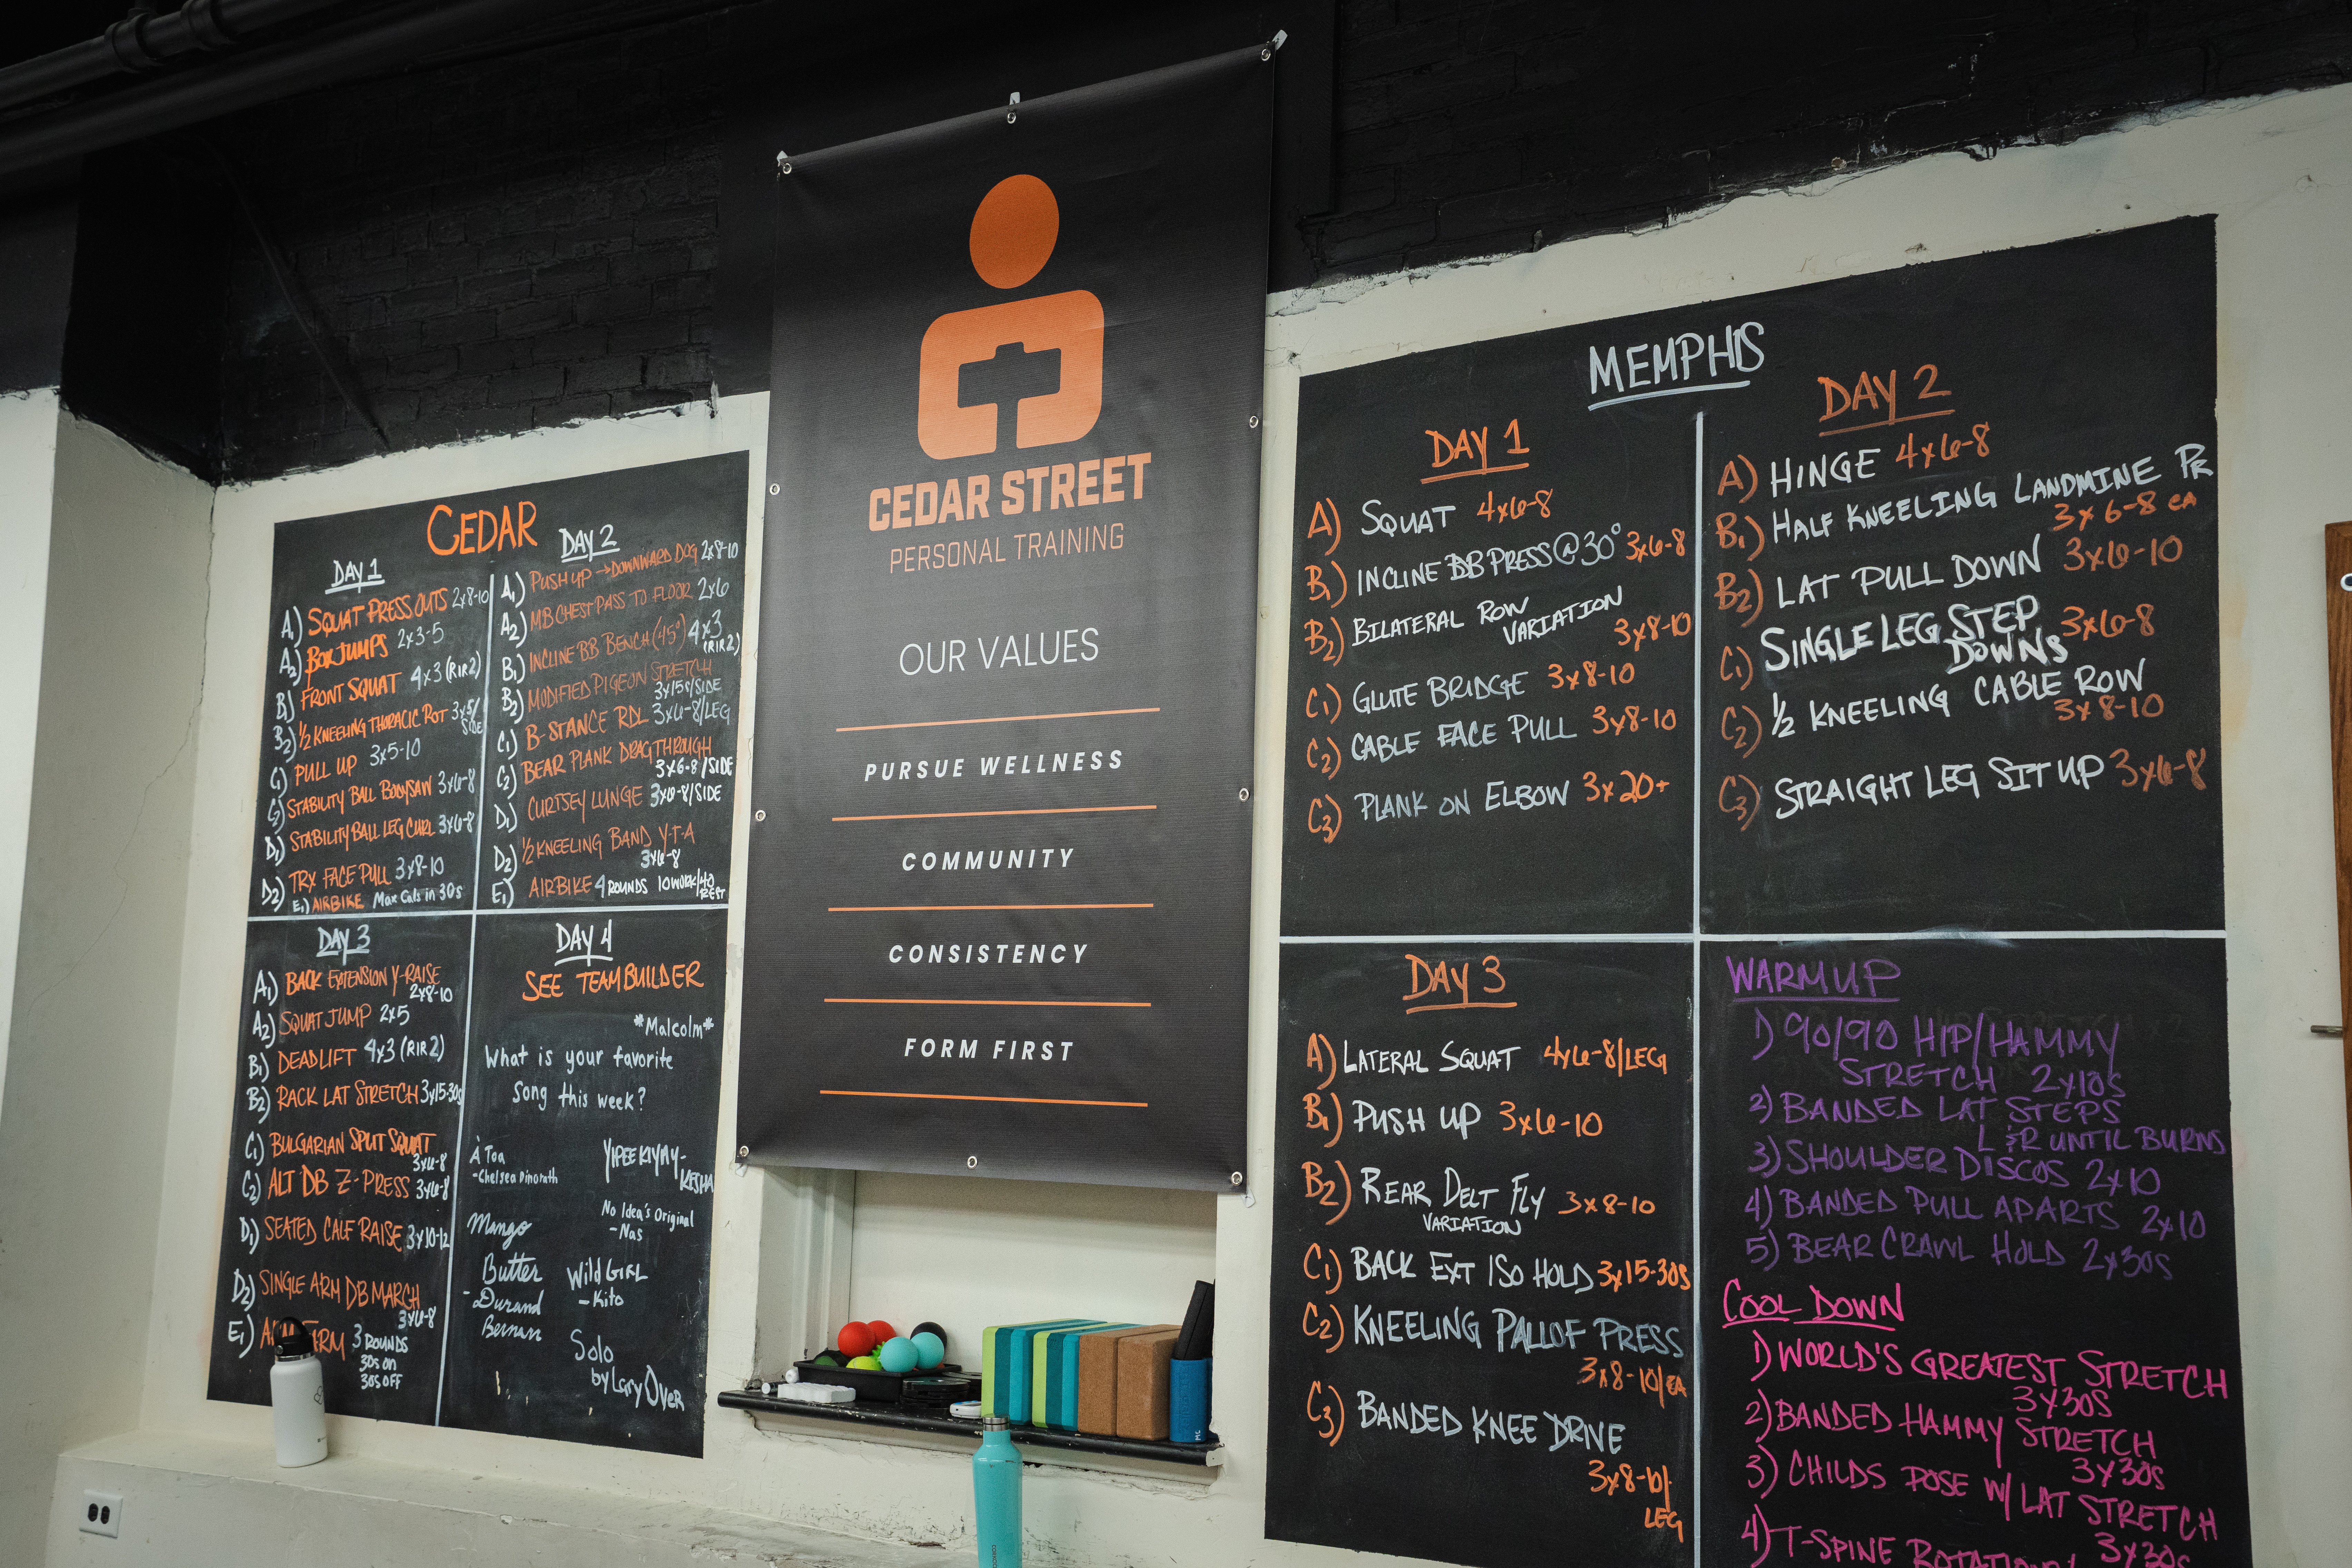 CEDAR
DAY 1
A1) SQUAT PRESS OUTS 2x8-10
A2) BOX JUMPS 2x3-5
B1) FRONT SQUAT 4x3 (RIR2)
B2) 1/2 KNEELING THORACIC ROT 3x5/
SIDE
C1) PULL UP 3x5-10
C2) STABILITY BALL BODYSAW 3x6-8
D1) STABILITY BALL LEG CURL 3x6-8
D2) TRX FACE PULL 3x8-10
E1) AIRBIKE Max Cals in 30s
DAY 2
A1) PUSH UP → DOWNWARD DOG 2x8-10
A2) MB CHEST PASS TO FLOOR 2x6
B1) INCLINE BB BENCH (45°) 4x3
(RIR2)
B2) MODIFIED PIGEON STRETCH
3x15s/SIDE
C1) B-STANCE RDL 3x6-8/LEG
C2) BEAR PLANK DRAGTHROUGH
3x6-8/SIDE
D1) CURTSEY LUNGE 3x6-8/SIDE
D2) 1/2 KNEELING BAND Y-T-A
3x6-8
E1) AIRBIKE 4 ROUNDS 10 WORK/40
REST
DAY 3
A1) BACK EXTENSION Y-RAISE
2x8-10
A2) SQUAT JUMP 2x5
B1) DEADLIFT 4x3 (RIR2)
B2) RACK LAT STRETCH 3x15-30s
C1) BULGARIAN SPLIT SQUAT
3x6-8
C2) ALT DB Z-PRESS 3x6-8
D1) SEATED CALF RAISE 3x10-12
D2) SINGLE ARM DB MARCH
3x6-8
E1) 3 ROUNDS
30s on
30s OFF
DAY 4
SEE TEAMBUILDER
*Malcolm*
What is your favorite
song this week?
À Toa
-Chelsea Dinorath
YIPEE KIYAY-
KESHA
No Idea's Original
-Nas
Mango
Butter
- Durand
Bernarr
Wild GIRL
-Kito
Solo
by Lary Over
CEDAR STREET
PERSONAL TRAINING
OUR VALUES
PURSUE WELLNESS
COMMUNITY
CONSISTENCY
FORM FIRST
MEMPHIS
DAY 1
A) SQUAT 4x6-8
B1) INCLINE DB PRESS @ 30° 3x6-8
B2) BILATERAL ROW
VARIATION
3x8-10
C1) GLUTE BRIDGE 3x8-10
C2) CABLE FACE PULL 3x8-10
C3) PLANK ON ELBOW 3x20+
DAY 2
A) HINGE 4x6-8
B1) HALF KNEELING LANDMINE PR
3x6-8 ea
B2) LAT PULL DOWN 3x6-10
C1) SINGLE LEG STEP
DOWNS 3x6-8
C2) 1/2 KNEELING CABLE ROW
3x8-10
C3) STRAIGHT LEG SIT UP 3x6-8
DAY 3
A) LATERAL SQUAT 4x6-8/LEG
B1) PUSH UP 3x6-10
B2) REAR DELT FLY 3x8-10
VARIATION
C1) BACK EXT ISO HOLD 3x15-30s
C2) KNEELING PALLOF PRESS
3x8-10/EA
C3) BANDED KNEE DRIVE
3x8-10/
LEG
WARMUP
1) 90/90 HIP/HAMMY
STRETCH 2x10s
2) BANDED LAT STEPS
L & R UNTIL BURNS
3) SHOULDER DISCOS 2x10
4) BANDED PULL APARTS 2x10
5) BEAR CRAWL HOLD 2x30s
COOL DOWN
1) WORLD'S GREATEST STRETCH
3x30s
2) BANDED HAMMY STRETCH
3x30s
3) CHILDS POSE W/ LAT STRETCH
3x30s
4) T-SPINE ROTATION